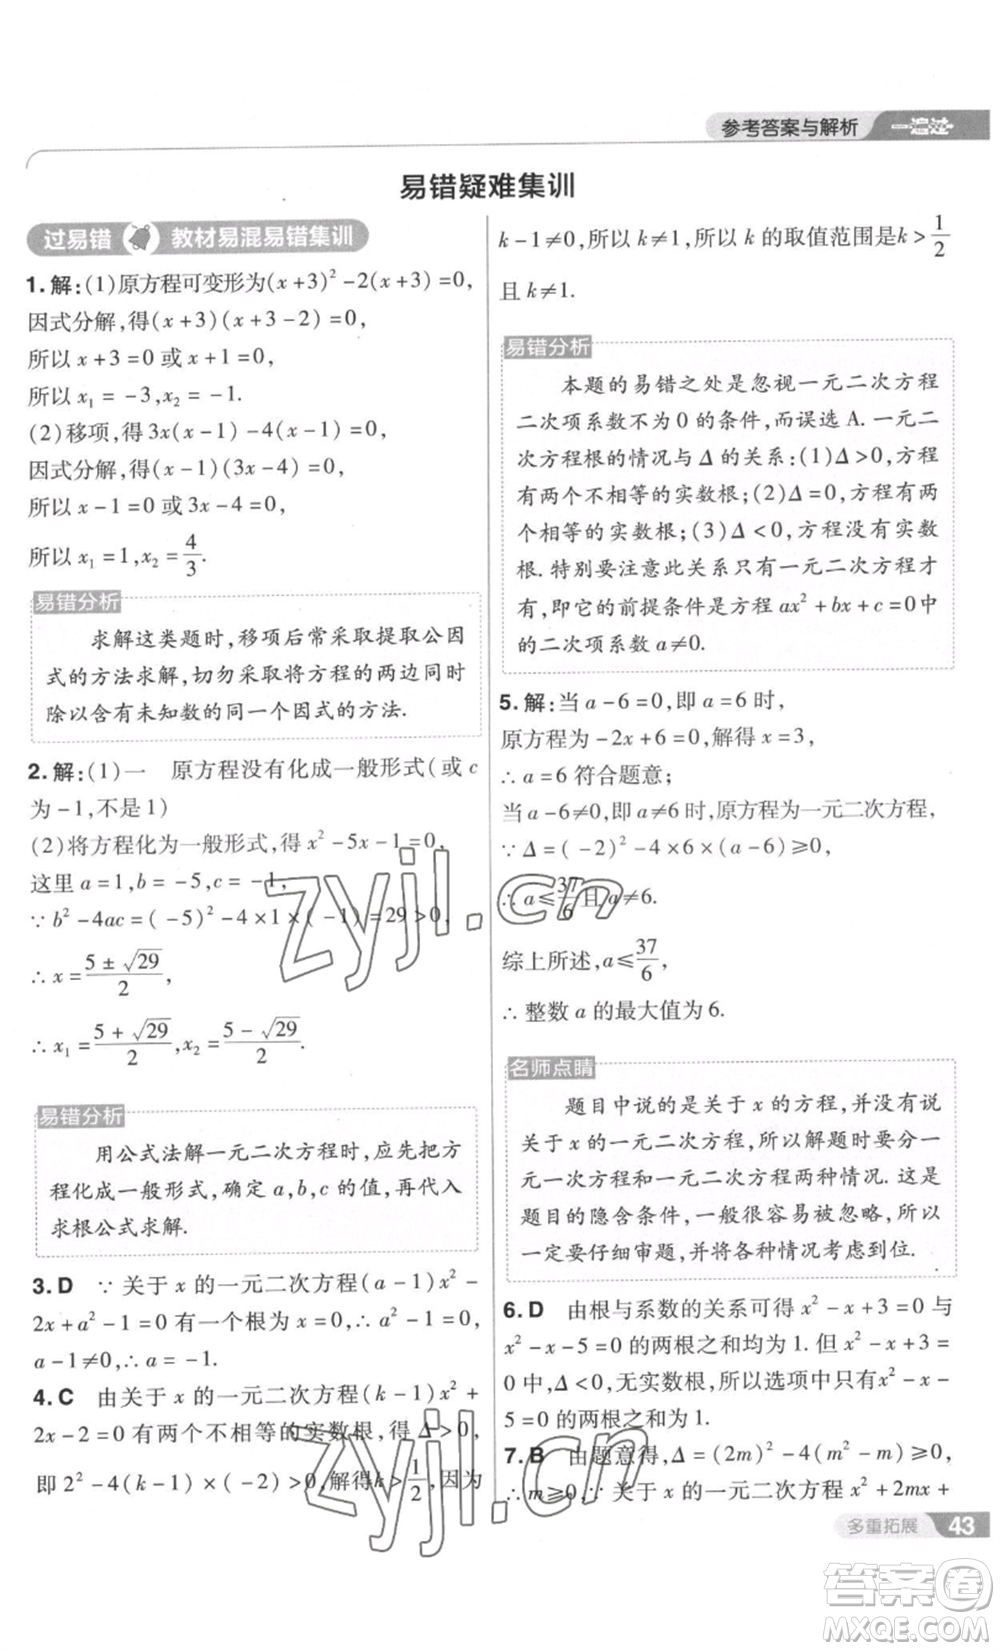 参考答案与解析 一遍过
易错疑难集训
过易错 教材易混易错集训
1.解:(1)原方程可变形为(x+3)²-2(x+3)=0,
因式分解,得(x+3)(x+3-2)=0,
所以 x+3=0 或 x+1=0,
所以 x₁=-3,x₂=-1.
(2)移项,得 3x(x-1)-4(x-1)=0,
因式分解,得(x-1)(3x-4)=0,
所以 x-1=0 或 3x-4=0,
所以 x₁=1,x₂=4/3.
易错分析
求解这类题时,移项后常采取提取公因
式的方法求解,切勿采取将方程的两边同时
除以含有未知数的同一个因式的方法.
2.解:(1)一 原方程没有化成一般形式(或 c
为-1,不是1)
(2)将方程化为一般形式,得 x²-5x-1=0,
这里 a=1,b=-5,c=-1,
∵ b²-4ac=(-5)²-4×1×(-1)=29>0,
∴ x=(5±√29)/2,
∴ x₁=(5+√29)/2,x₂=(5-√29)/2.
易错分析
用公式法解一元二次方程时,应先把方
程化成一般形式,确定 a,b,c 的值,再代入
求根公式求解.
3.D ∵ 关于 x 的一元二次方程(a-1)x²-
2x+a²-1=0有一个根为0,∴ a²-1=0,
a-1≠0,∴ a=-1.
4.C 由关于 x 的一元二次方程(k-1)x²+
2x-2=0 有两个不相等的实数根,得 Δ>0,
即 2²-4(k-1)×(-2)>0,解得k>1/2,因为
k-1≠0,所以 k≠1,所以 k 的取值范围是k>1/2
且 k≠1.
易错分析
本题的易错之处是忽视一元二次方程
二次项系数不为0的条件,而误选A.一元二
次方程根的情况与Δ的关系:(1)Δ>0,方程
有两个不相等的实数根;(2)Δ=0,方程有两
个相等的实数根;(3)Δ<0,方程没有实数
根.特别要注意此关系只有一元二次方程才
有,即它的前提条件是方程 ax²+bx+c=0中
的二次项系数 a≠0.
5.解:当 a-6=0,即 a=6 时,
原方程为-2x+6=0,解得 x=3,
∴ a=6 符合题意;
当 a-6≠0,即 a≠6 时,原方程为一元二次方程,
∵ Δ=(-2)²-4×6×(a-6)≥0,
∴ a≤37/6且 a≠6.
综上所述,a≤37/6,
∴ 整数 a 的最大值为6.
名师点睛
题目中说的是关于 x 的方程,并没有说
关于 x 的一元二次方程,所以解题时要分一
元一次方程和一元二次方程两种情况.这是
题目的隐含条件,一般很容易被忽略,所以
一定要仔细审题,并将各种情况考虑到位.
6.D 由根与系数的关系可得 x²-x+3=0 与
x²-x-5=0 的两根之和均为1.但 x²-x+3=
0中,Δ<0,无实数根,所以选项中只有x²-x-
5=0 的两根之和为1.
7.B 由题意得,Δ=(2m)²-4(m²-m)≥0,
∴ m≥0,∵ 关于 x 的一元二次方程 x²+2mx+
多重拓展 43
zyjl.cn
zyjl.cn
答案圈
MXQE.COM